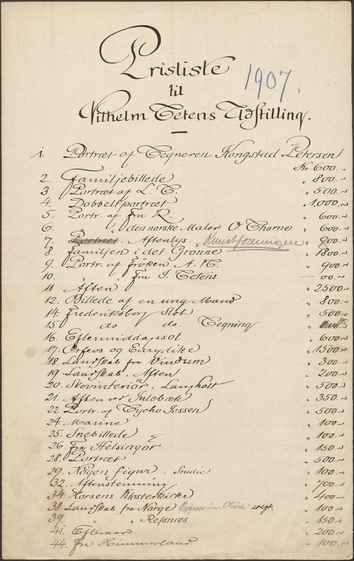 Prisliste
1907.
til
Vilhelm Tetens Udstilling.
1. Portræt af Tegneren Kongstad Petersen Kr. 600.
2. Familjebillede " 800.
3. Portræt af L. T. " 500.
4. Dobbeltportræt " 1000.
5. Portr. af Fru R. " 600.
6. " den norske Maler O. Thorne " 600.
7. Portræt Aftenlys
8. Familjen i det Grønne " 1800.
9. Portr. af Frøken A. K. " 400.
10. " Fru J. Tetens
11. Aften " 2500.
12. Billede af en ung Mand " 800.
14. Frederiksborg Slot " 500.
15. do do. Tegning
16. Eftermiddagssol " 600.
17. Orfeus og Eurydike " 1500.
18. Landskab fra Vindrum " 300.
19. Landskab. Aften " 200.
20. Skovinteriør. Langhøst " 500.
21. Aften ved Julebæk " 350.
22. Portr. af Tycho Jessen " 500.
24. Marine " 100.
25. Snebillede " 100.
26. Fra Helsingør " 150.
28. Portræt " 500.
29. Nøgen Figur. Studie " 100.
32. Aftenstemning " 700.
34. Horsens Klosterkirke " 400.
38. Landskab fra Norge " 100.
39. " Refsnæs " 150.
41. Efteraar " 200.
44. Fra Himmerland " 100.